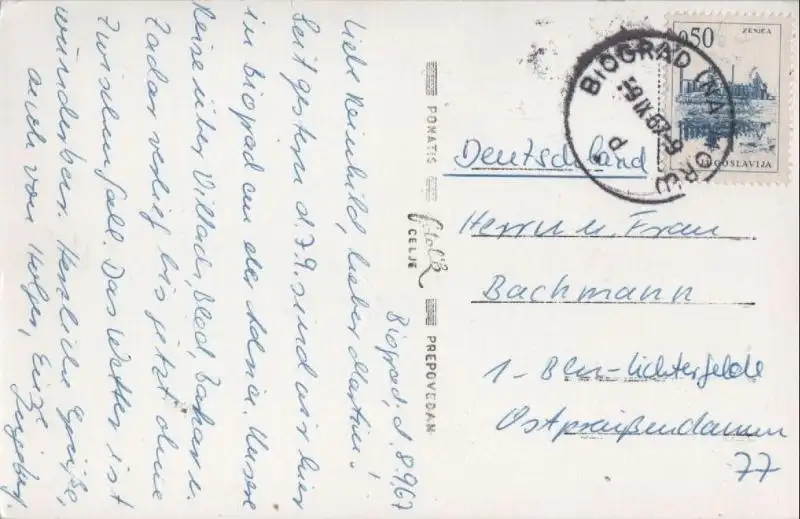 Biograd, d. 8.9.67
Liebe Reinhild, lieber Martin!
Seit gestern d. 7.9. sind wir hier
in Biograd an der Adria. Unsere
Reise über Villach, Bled, Bakar u.
Zadar verlief bis jetzt ohne
Zwischenfall. Das Wetter ist
wunderbar. Herzliche Grüße,
auch von Holger, Eure
Ingeborg.
PONATIS
CELJE
PREPOVEDAN
0,50
ZENICA
JUGOSLAVIJA
BIOGRAD NA MORU
-9.IX.67-9
P
Deutschland
Herrn u. Frau
Bachmann
1-Bln-Lichterfelde
Ostpreußendamm
77